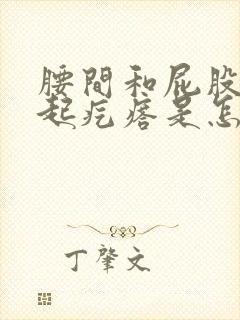 腰間和屁股
起疙瘩是怎
丁肇文